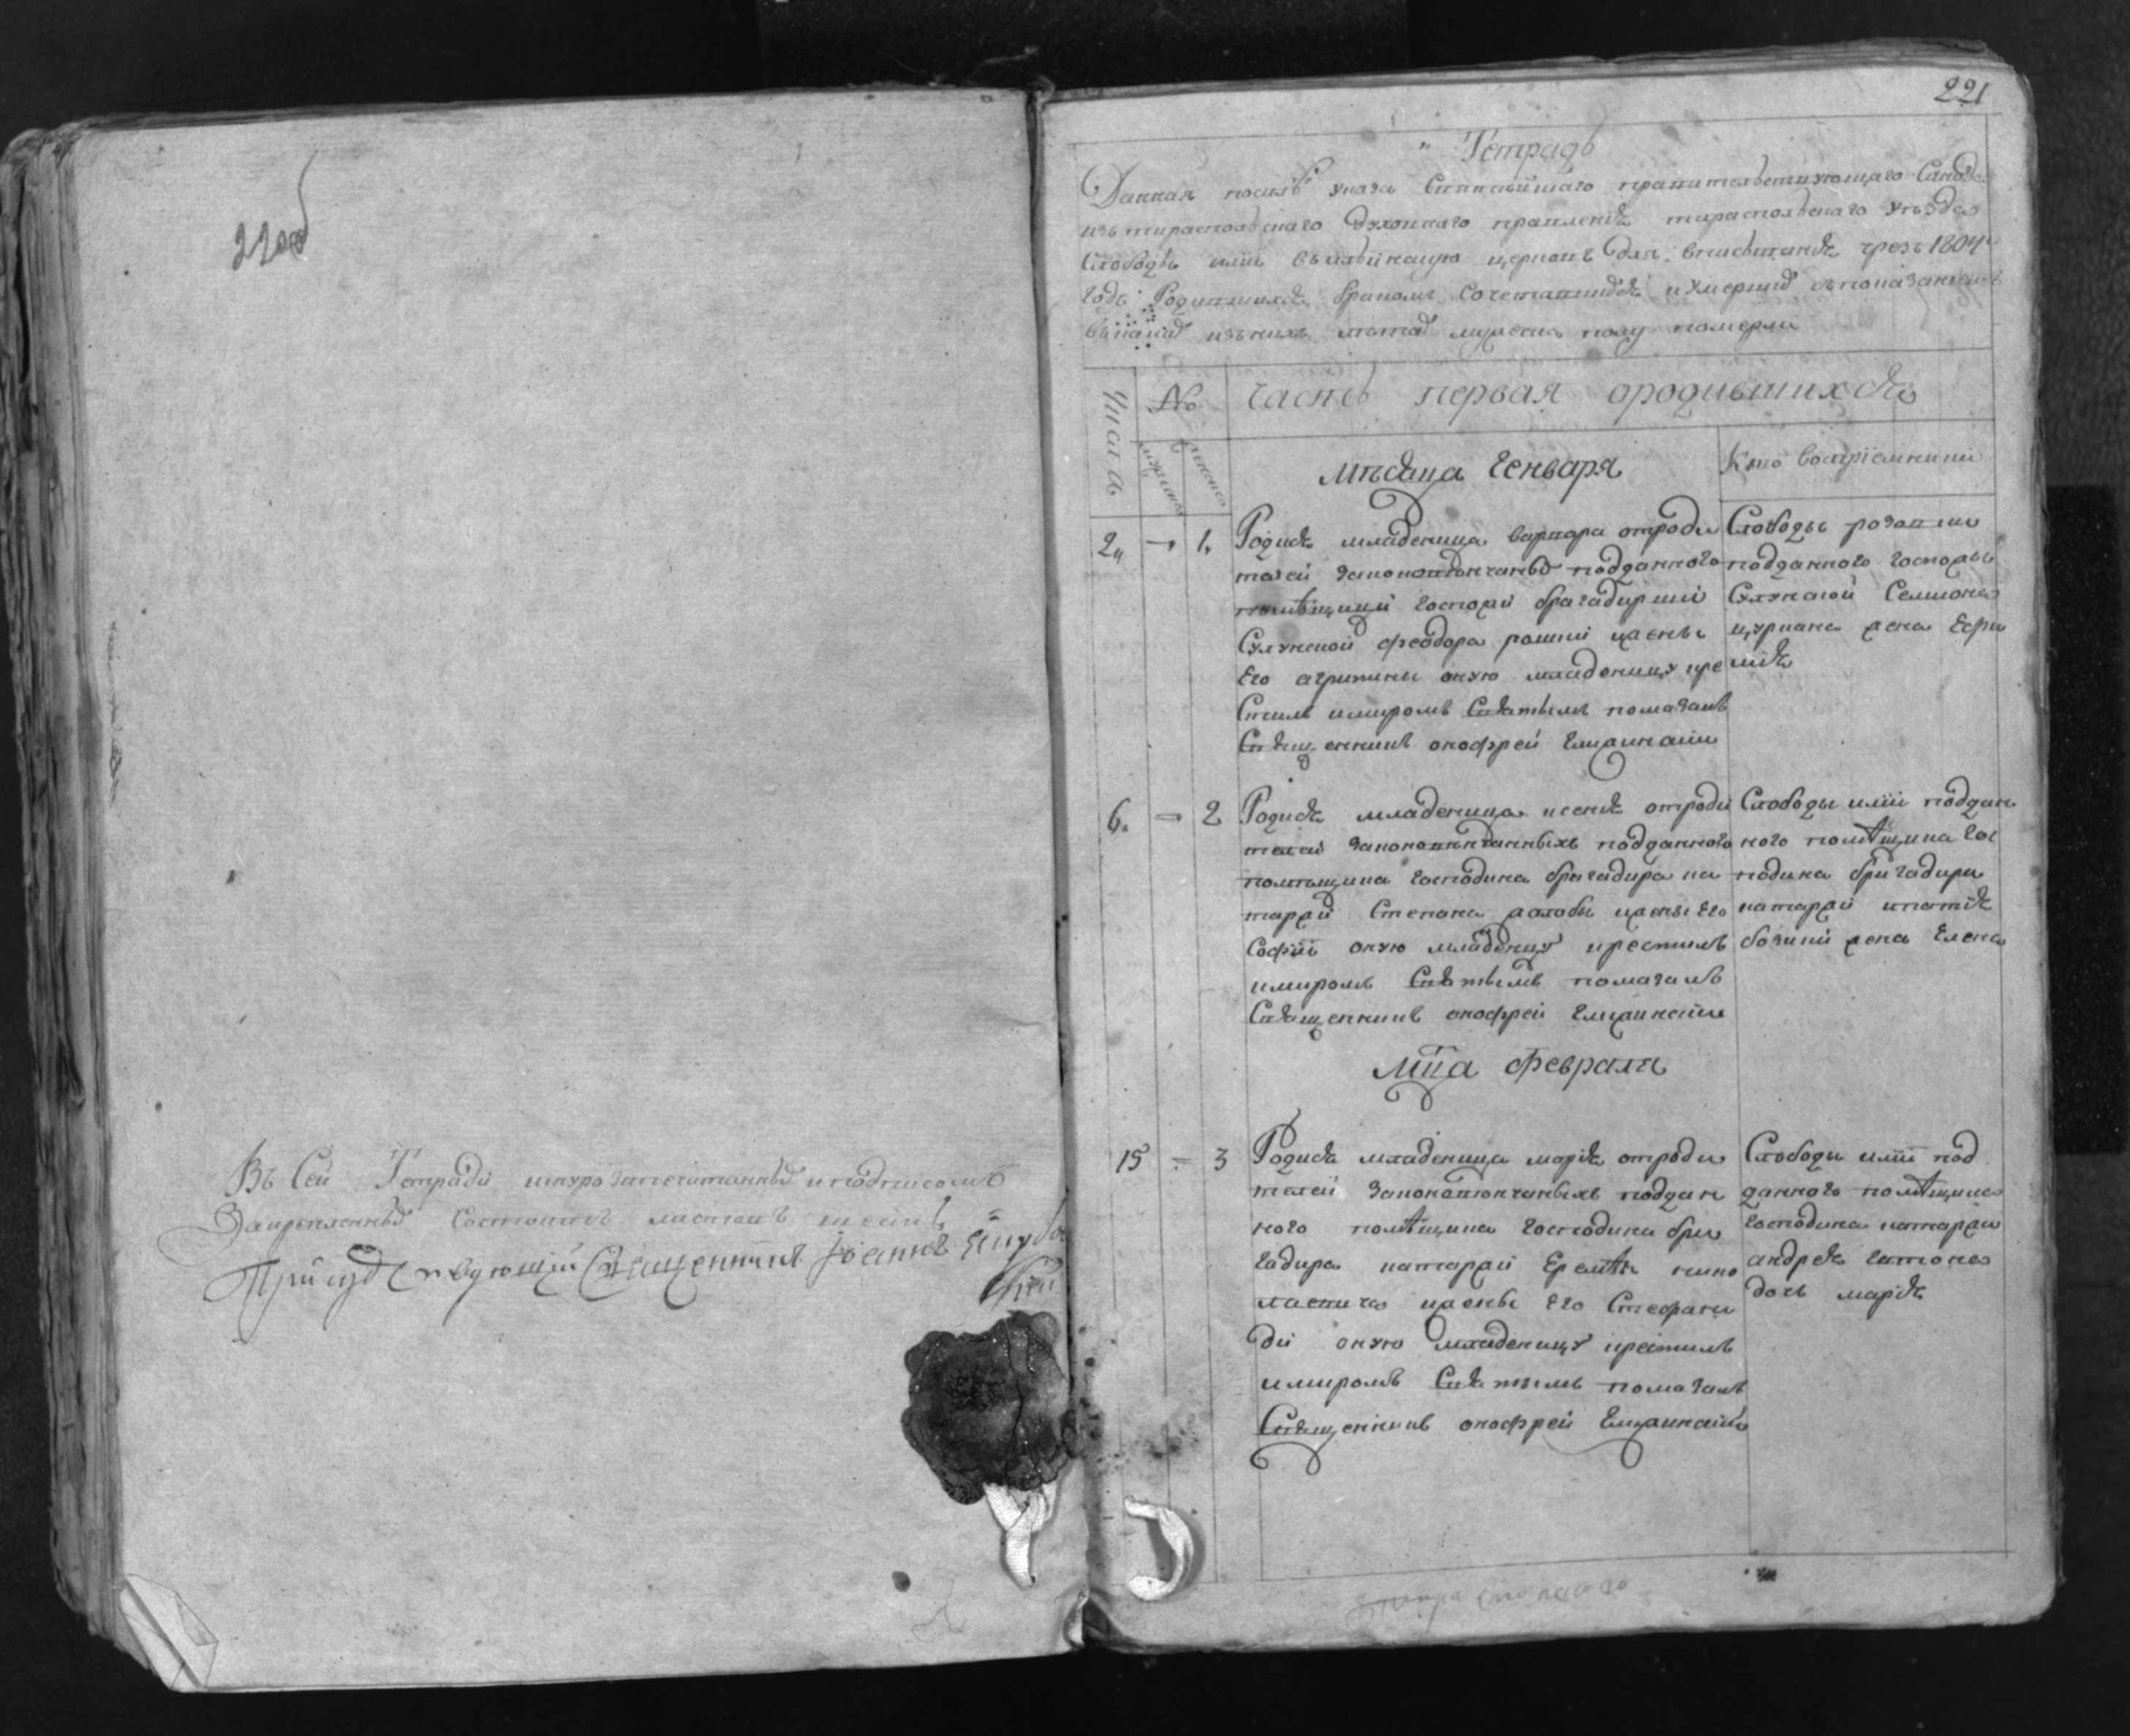 220об
Въ Сей Тетради шнурозапечатанныхъ и подписомъ
Закрепленныхъ Состоитъ листовъ
Присудствующій Священникъ Іоаннъ
221
Тетрадь
Данная посилѣ указа Святѣйшаго правительствующаго Сѵнода
изъ тираспольскаго духовнаго правленія тираспольскаго уѣзда
Слободы иліи въ церковь для вписыванія чрезъ 1804й
годъ Родившихся бракомъ Сочетавшихся и умершихъ съ показаніемъ
въ какихъ изъ нихъ лѣтахъ мужеска полу померли
Числа
№
Часть первая ородившихся
мужеска
женска
мѣсяца Генваря
Кто воспріемники
2
1
Родися младеница варвара отроди
телей законовѣнчаныхъ подданного
помѣщицы госпожи брагадирши
Феодора жены
его агрипины оную младеницу кре
стилъ имиромъ Святымъ помазалъ
Священникъ онофрей
Слободы
подданного госпожы
Семиона
жена Ефи
мія
6
2
Родися младеница ксенія отроди
телей законовѣнчанныхъ подданного
помѣщика господина брагадира ка
таржи Степана жены его
Софіи оную младеницу крестилъ
имиромъ Святымъ помазалъ
Священникъ онофрей
Слободы иліи поддан
ного помѣщика гос
подина бригадира
катаржи игнатія
жена Елена
мца Февраля
15
3
Родися младеница марія отроди
телей законовѣнчаныхъ поддан
ного помѣщика господина бри
гадира катаржи Еремѣя
жены его Стефани
ди оную младеницу крестилъ
имиромъ Святымъ помазалъ
Священникъ онофрей
Слободы иліи под
данного помѣщика
господина катаржи
андрея
дочь марія